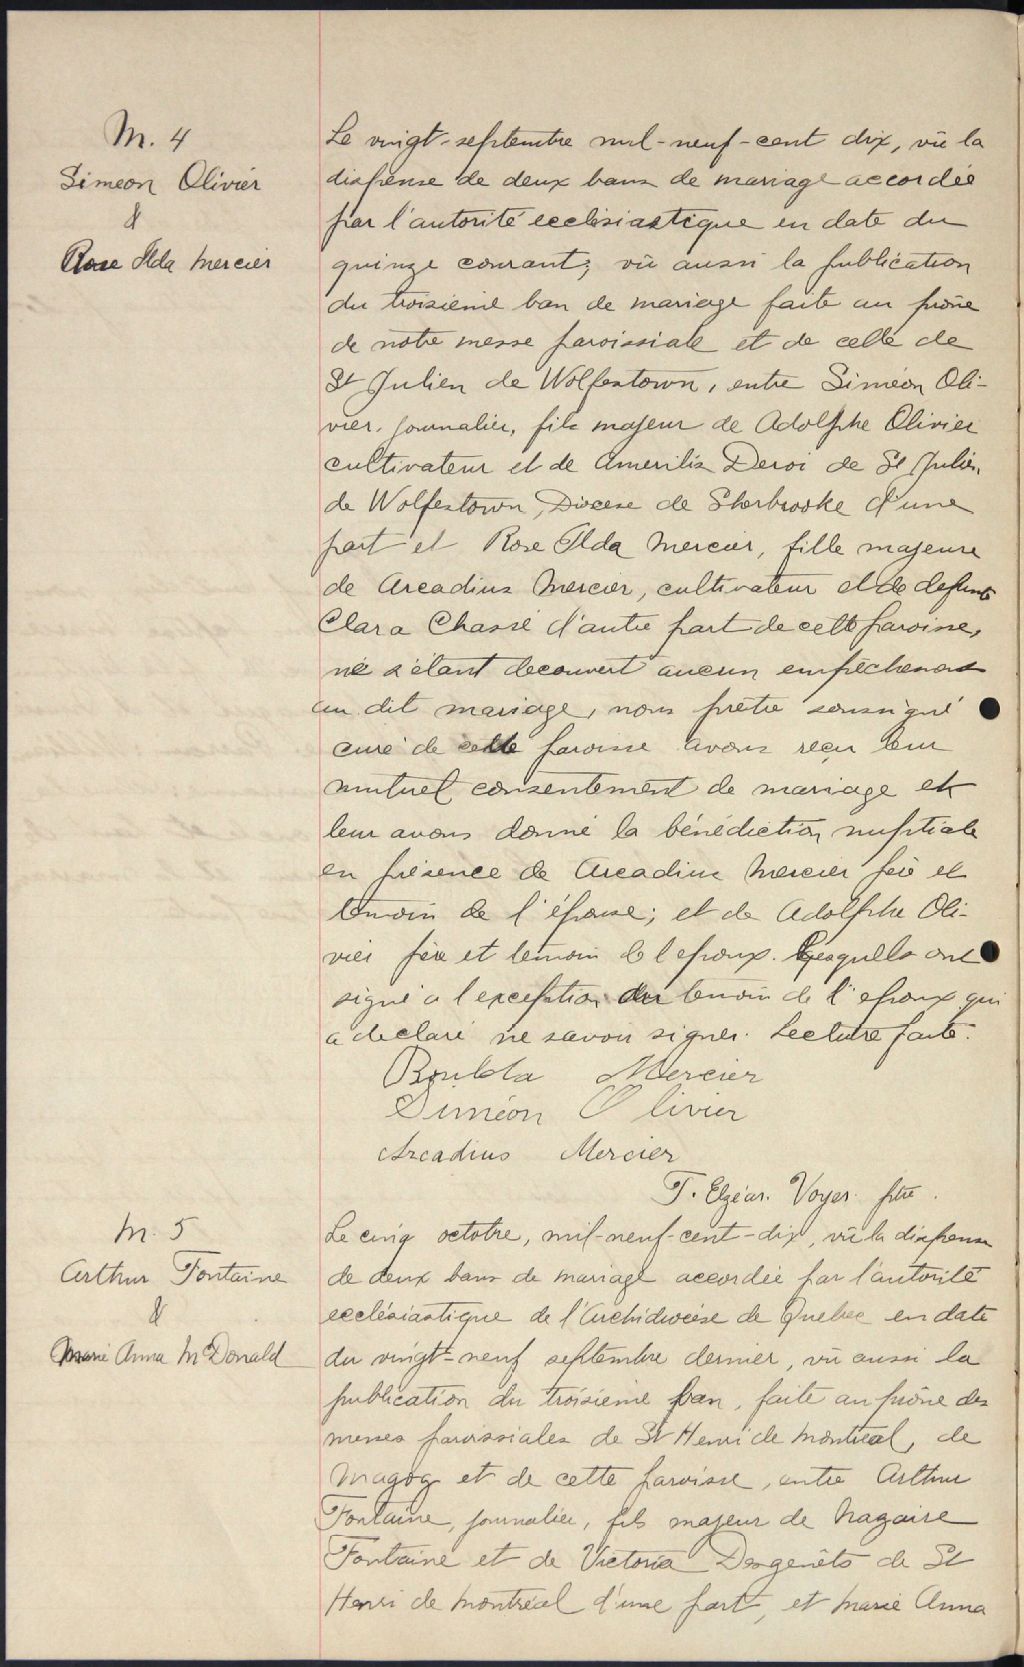 M. 4
Simeon Olivier
&
Rose Ilda Mercier
Le vingt-septembre mil-neuf-cent dix, vû la
dispense de deux bans de mariage accordée
par l'autorité ecclésiastique en date du
quinze courant; vû aussi la publication
du troisième ban de mariage faite au prône
de notre messe paroissiale et de celle de
St Julien de Wolfestown, entre Siméon Oli-
vier, journalier, fils majeur de Adolphe Olivier
cultivateur et de Amerilis Deroi de St Julien
de Wolfestown, Diocese de Sherbrooke d'une
part et Rose Ilda Mercier, fille majeure
de Arcadius Mercier, cultivateur et de defunte
Clara Chassé d'autre part de cette paroisse,
ne s'étant decouvert aucun empêchement
au dit mariage, nous prêtre soussigné
curé de cette paroisse avons reçu leur
mutuel consentement de mariage et
leur avons donné la bénédiction nuptiale
en présence de Arcadius Mercier père et
temoin de l'épouse; et de Adolphe Oli-
vier père et temoin de l'epoux. Lesquells ont
signé a l'exception du temoin de l'epoux qui
a declaré ne savoir signer. Lecture faite.
Mercier
Siméon Olivier
Arcadius Mercier
T. Elzéar. Voyer ptre.
M. 5
Arthur Fontaine
&
Marie Anna McDonald
Le cinq octobre, mil-neuf-cent-dix, vû la dispense
de deux bans de mariage accordée par l'autorité
ecclésiastique de l'Archidiocèse de Quebec en date
du vingt-neuf septembre dernier, vû aussi la
publication du troisième ban, faite au prône des
messes paroissiales de St Henri de Montréal, de
Magog et de cette paroisse, entre Arthur
Fontaine, journalier, fils majeur de Nazaire
Fontaine et de Victoria Desgenêts de St
Henri de Montréal d'une part, et Marie Anna